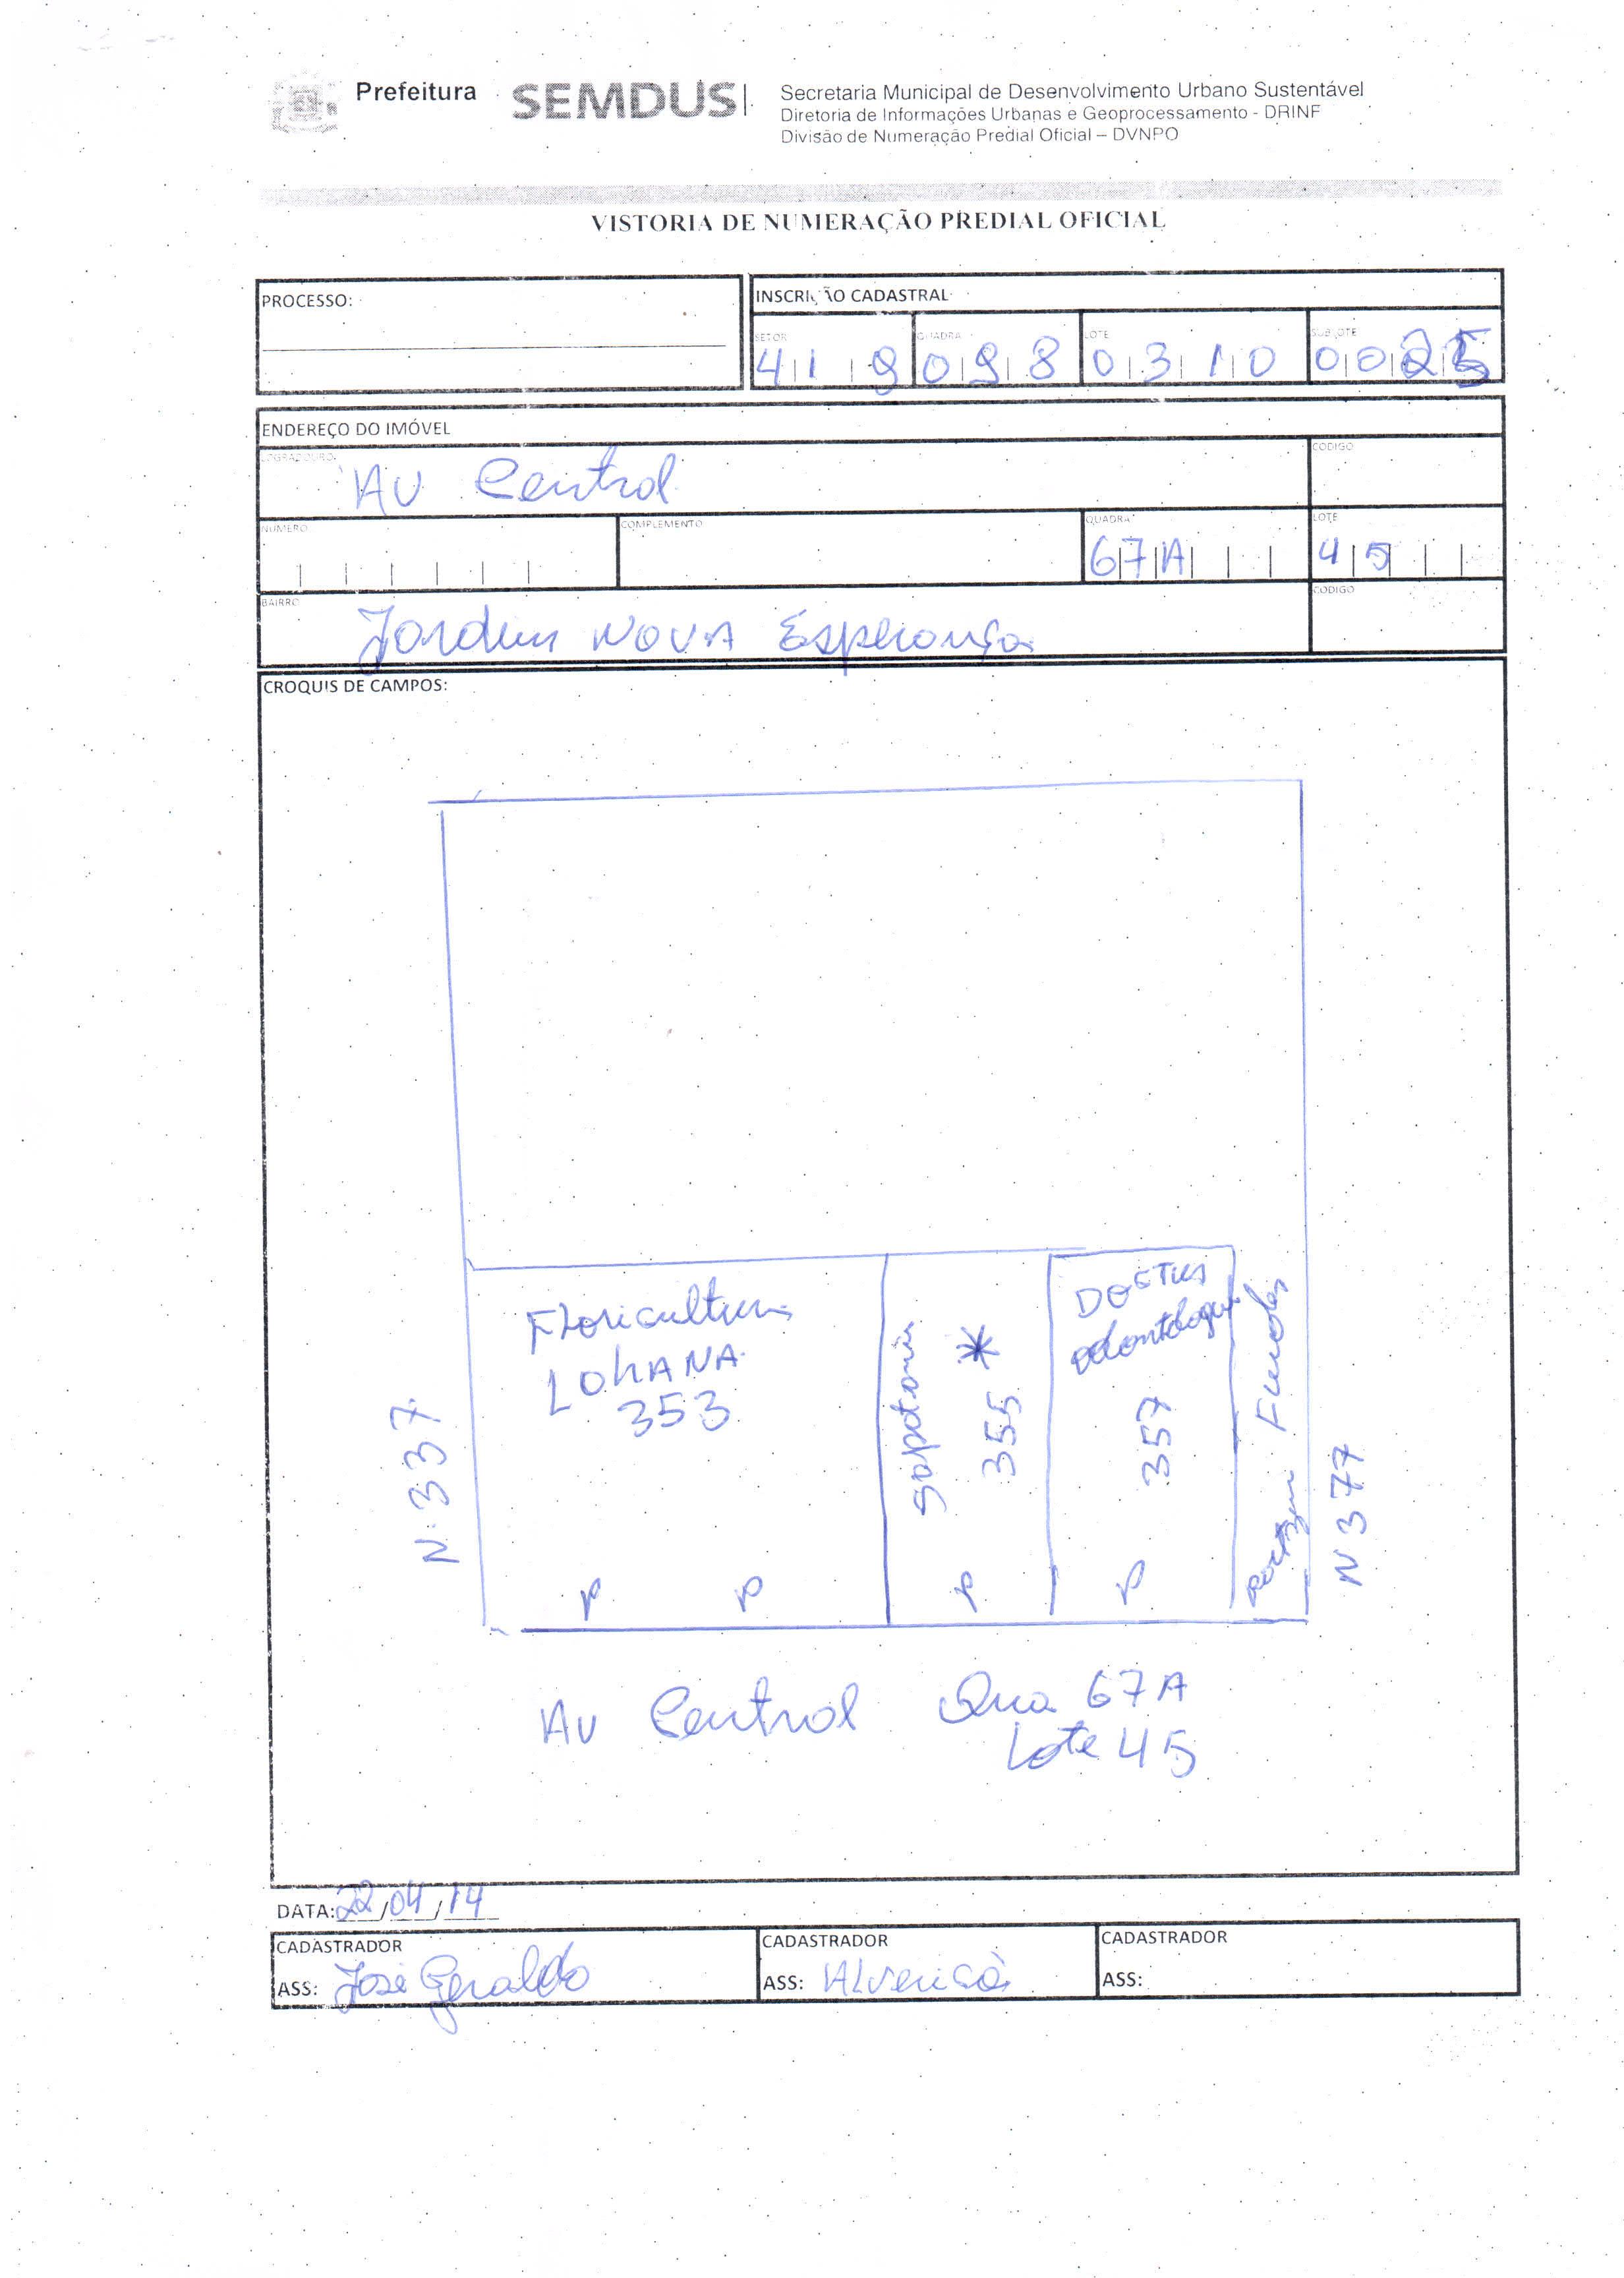 Prefeitura SEMDUS
Secretaria Municipal de Desenvolvimento Urbano Sustentável
Diretoria de Informações Urbanas e Geoprocessamento - DRINF
Divisão de Numeração Predial Oficial – DVNPO
VISTORIA DE NUMERAÇÃO PREDIAL OFICIAL
PROCESSO:
INSCRIÇÃO CADASTRAL
SETOR QUADRA LOTE SUBLOTE
41 9 098 0310 002
ENDEREÇO DO IMÓVEL
LOGRADOURO CODIGO
AV Central
NUMERO COMPLEMENTO QUADRA LOTE
67A 45
BAIRRO CODIGO
Jardim NOVA Esperança
CROQUIS DE CAMPOS:
N. 337
Floricultura
LOHANA
353
P P
Sapataria
355 *
P
odontologia
357
P
Fundos
N 377
AV Central Qua 67A
Lote 45
DATA: 22/04/14
CADASTRADOR CADASTRADOR CADASTRADOR
ASS: José Geraldo ASS: ASS: